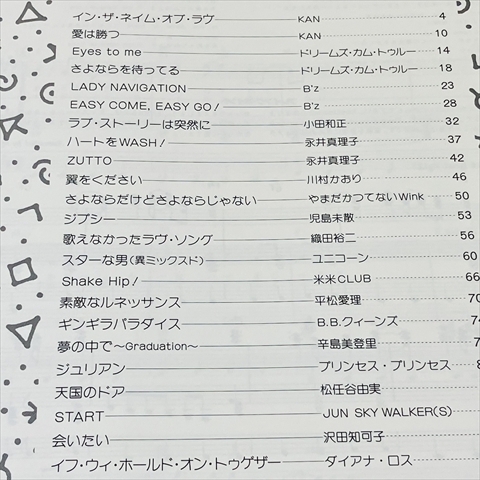 イン・ザ・ネイム・オブ・ラヴ KAN 4
愛は勝つ KAN 10
Eyes to me ドリームズ・カム・トゥルー 14
さよならを待ってる ドリームズ・カム・トゥルー 18
LADY NAVIGATION B'z 23
EASY COME, EASY GO! B'z 28
ラブ・ストーリーは突然に 小田和正 32
ハートをWASH! 永井真理子 37
ZUTTO 永井真理子 42
翼をください 川村かおり 46
さよならだけどさよならじゃない やまだかつてないWink 50
ジプシー 児島未散 53
歌えなかったラヴ・ソング 織田裕二 56
スターな男(異ミックスド) ユニコーン 60
Shake Hip! 米米CLUB 66
素敵なルネッサンス 平松愛理 70
ギンギラパラダイス B.B.クィーンズ
夢の中で〜Graduation〜 辛島美登里
ジュリアン プリンセス・プリンセス
天国のドア 松任谷由実
START JUN SKY WALKER(S)
会いたい 沢田知可子
イフ・ウィ・ホールド・オン・トゥゲザー ダイアナ・ロス